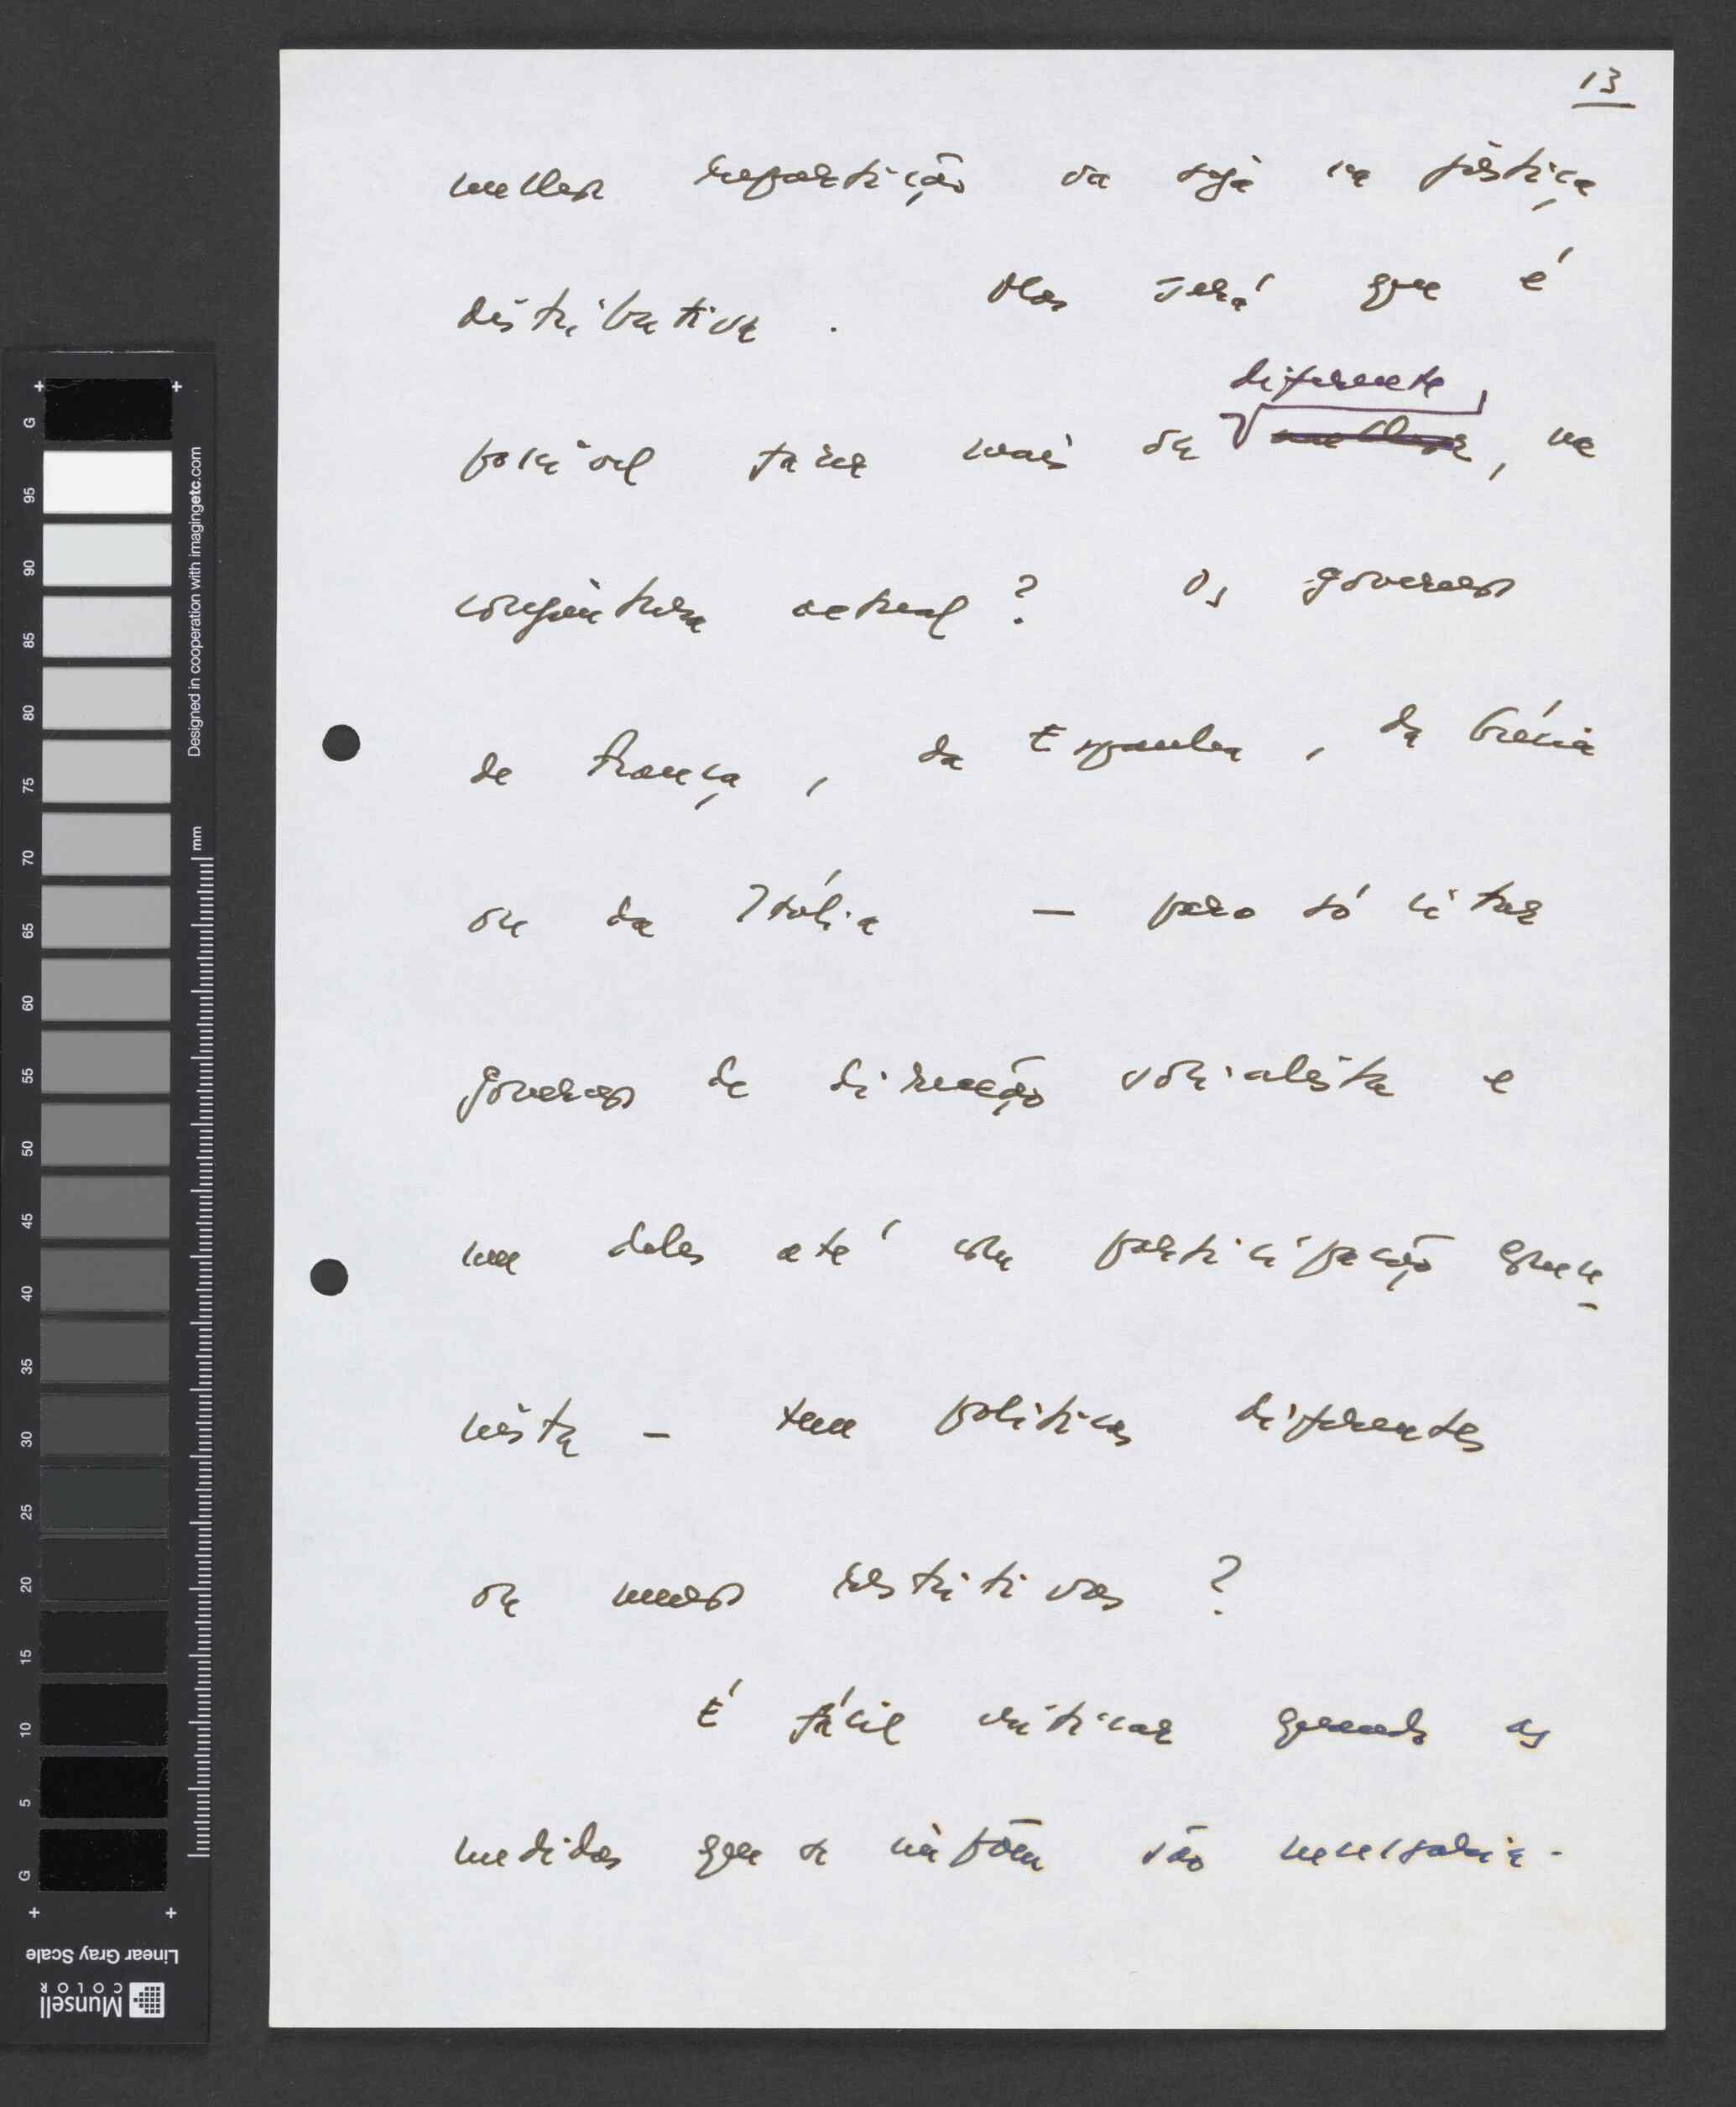 13
melhor repartição ou seja na justiça
distributiva. Mas será que é
diferente
possível fazer mais ou melhor, na
conjuntura actual? Os governos
de França, da Espanha, da Grécia
ou da Itália — para só citar
governos de direcção socialista e
um deles até com participação comu-
nista — tem políticas diferentes
ou menos restritivas?
É fácil criticar quando as
medidas que se impõem são necessaria-
G
95
90
85
80
75
70
65
60
55
50
45
40
35
30
25
20
15
10
5
G
mm
Designed in cooperation with imagingetc.com
Linear Gray Scale
Munsell
COLOR